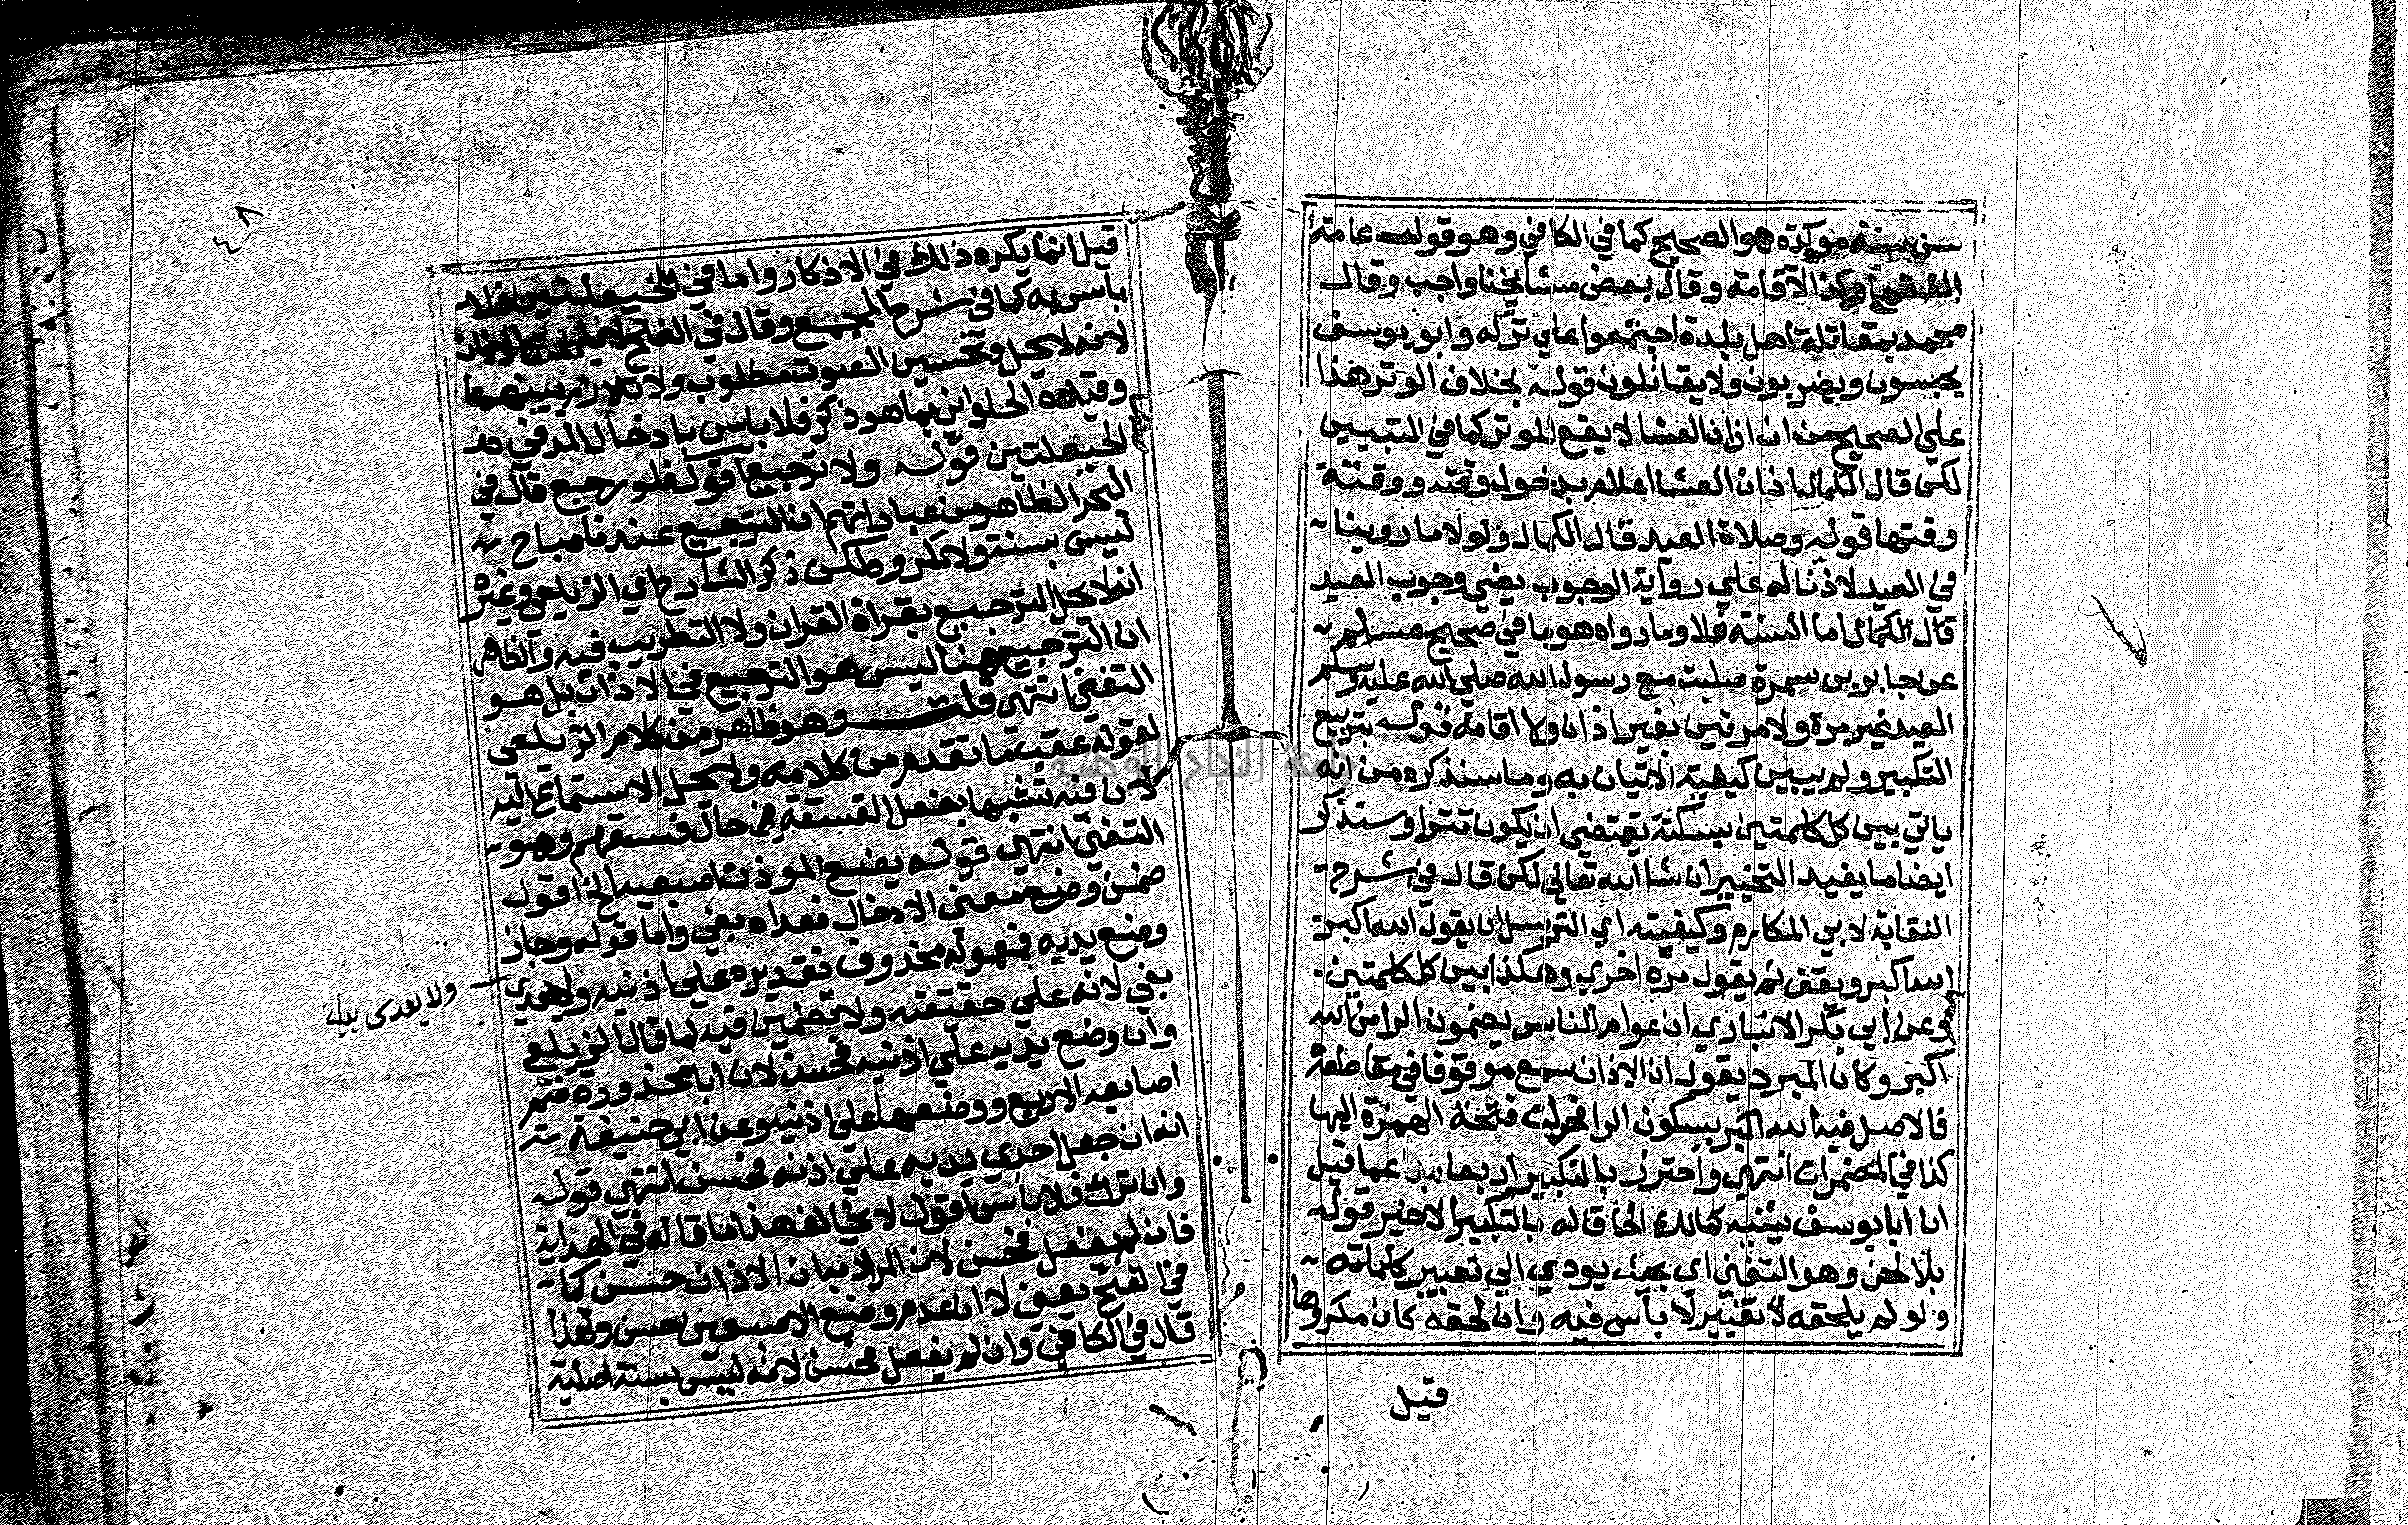 سن سنة موكدة هو الصحيح كما في الكافي وهو قول عامة
الفقها وكذا الاقامة وقال بعض مشايخنا واجب وقال
محمد بمقاتلة اهل بلدة اجتمعوا علي تركه وابو يوسف
يحبسون ويضربون ولا يقاتلون قوله بخلاف الوتر هذا
علي الصحيح من ان اذان العشا لا يقع للوتر كما في التبيين
لكن قال الكمال اذان العشا اعلام بدخول وقته ووقته
وقتها قوله وصلاة العيد قال الكمال ولولا ما روينا
في العيد لاذنا له علي رواية الوجوب يعني وجوب العيد
قال الكمال اما السنة فلا وما رواه هو ما في صحيح مسلم
عن جابر بن سمرة صليت مع رسول الله صلي الله عليه وسلم
العيد غير مرة ولا مرتين بغير اذان ولا اقامة قوله بتربيع
التكبير ولم يبين كيفية الاتيان به وما سنذكره من انه
ياتي بين كل كلمتين بسكتة يقتضي ان يكون تترا وسنذكر
ايضا ما يفيد التخيير ان شا الله تعالي لكن قال في شرح
النقاية لابي المكارم وكيفيته اي الترسل ان يقول الله اكبر
الله اكبر ويقف ثم يقول مرة اخري وهكذا بين كل كلمتين
وعن ابي بكر الانباري ان عوام الناس يضمون الرا من الله
اكبر وكان المبرد يقول ان الاذان سمع موقوفا في مقاطعه
فالاصل فيه الله اكبر بسكون الرا فحولت فتحة الهمزة اليها
كذا في المضمرات انتهي واحترز بالتكبير اربعا عما قيل
ان ابا يوسف يثنيه كمالك الحاقا له بالتكبير الاخير قوله
بلا لحن وهو التغني اي بحيث يودي الي تغيير كلماته
ولو لم يلحقه تغيير لا باس فيه وان لحقه كان مكروها
قيل
٤٨
قيل انما يكره ذلك في الاذكار واما في الحيعلتين فلا
باس به كما في شرح المجمع وقال في الفتح
لانه لا يحل وتحسين الصوت مطلوب ولا تلازم بينهما
وقيده الحلواني بما هو ذكر فلا باس بادخال المد في
الحيعلتين قوله ولا ترجيع اقول فلو رجع قال في
البحر الظاهر من عباراتهم ان الترجيع عندنا مباح
ليس بسنة ولا مكروه لكن ذكر الشارح اي الزيلعي وغيره
انه لا يحل الترجيع بقراة القران ولا التطريب فيه والظاهر
ان الترجيع هنا ليس هو الترجيع في الاذان بل هو
التغني انتهي قلت وهو ظاهر من كلام الزيلعي
لقوله عقب ما تقدم من كلامه ولا يحل الاستماع اليه
لان فيه تشبها بفعل الفسقة في حال فسقهم وهو
التغني انتهي قوله يضع الموذن اصبعيه الخ اقول
ضمن وضع معنى الادخال فعداه بفي واما قوله وجاز
وضع يديه فمفعوله محذوف تقديره علي اذنيه ولا يعدي
بفي لانه علي حقيقته ولا تضمين فيه لما قال الزيلعي
وان وضع يديه علي اذنيه فحسن لان ابا محذورة ضم
اصابعه الاربع ووضعها علي اذنيه وعن ابي حنيفة
انه ان جعل احدي يديه علي اذنه فحسن انتهي قوله
وان ترك فلا باس اقول لا يخالف هذا ما قاله في الهداية
فان لم يفعل فحسن لان المراد بيان الاذان حسن كما
في الفتح يعني لا ان عدم وضع الاصبعين احسن ولهذا
قال في الكافي وان لم يفعل فحسن لانه ليس بسنة اصلية
ولا يعدى
جامعة النجاح الوطنية